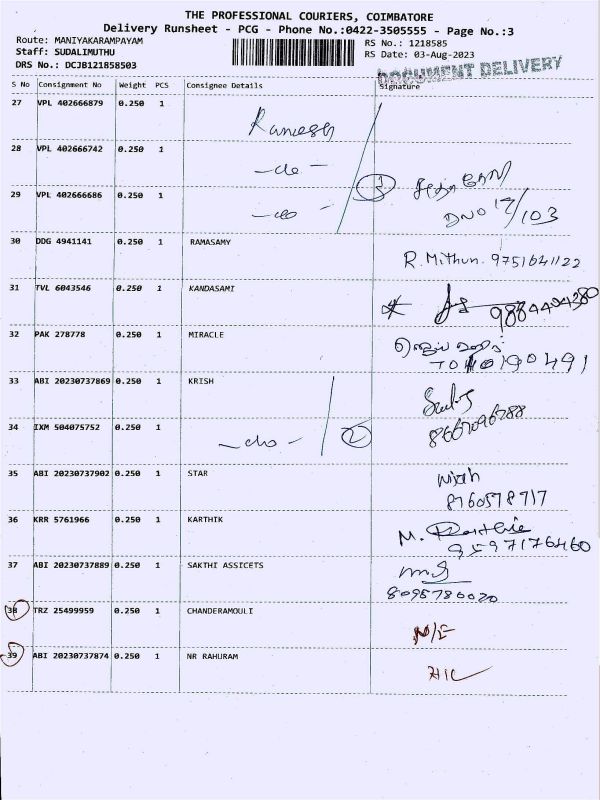 THE PROFESSIONAL COURIERS, COIMBATORE
Delivery Runsheet - PCG - Phone No.:0422-3505555 - Page No.:3
Route: MANIYAKARAMPAYAM
RS No.: 1218585
Staff: SUDALIMUTHU
RS Date: 03-Aug-2023
DRS No.: DCJB121858503
DOCUMENT DELIVERY
S No Consignment No Weight PCS Consignee Details Signature
27 VPL 402666879 0.250 1 Ramesh
28 VPL 402666742 0.250 1 -do-
29 VPL 402666686 0.250 1 -do- 3
DNO 12/103
30 DDG 4941141 0.250 1 RAMASAMY R. Mithun. 9751641122
31 TVL 6043546 0.250 1 KANDASAMI
32 PAK 278778 0.250 1 MIRACLE
33 ABI 20230737869 0.250 1 KRISH
34 IXM 504075752 0.250 1 -do- 2
35 ABI 20230737902 0.250 1 STAR
8760578717
36 KRR 5761966 0.250 1 KARTHIK M. Karthic
9597176460
37 ABI 20230737889 0.250 1 SAKTHI ASSICETS
8095780020
38 TRZ 25499959 0.250 1 CHANDERAMOULI N/E
39 ABI 20230737874 0.250 1 NR RAHURAM